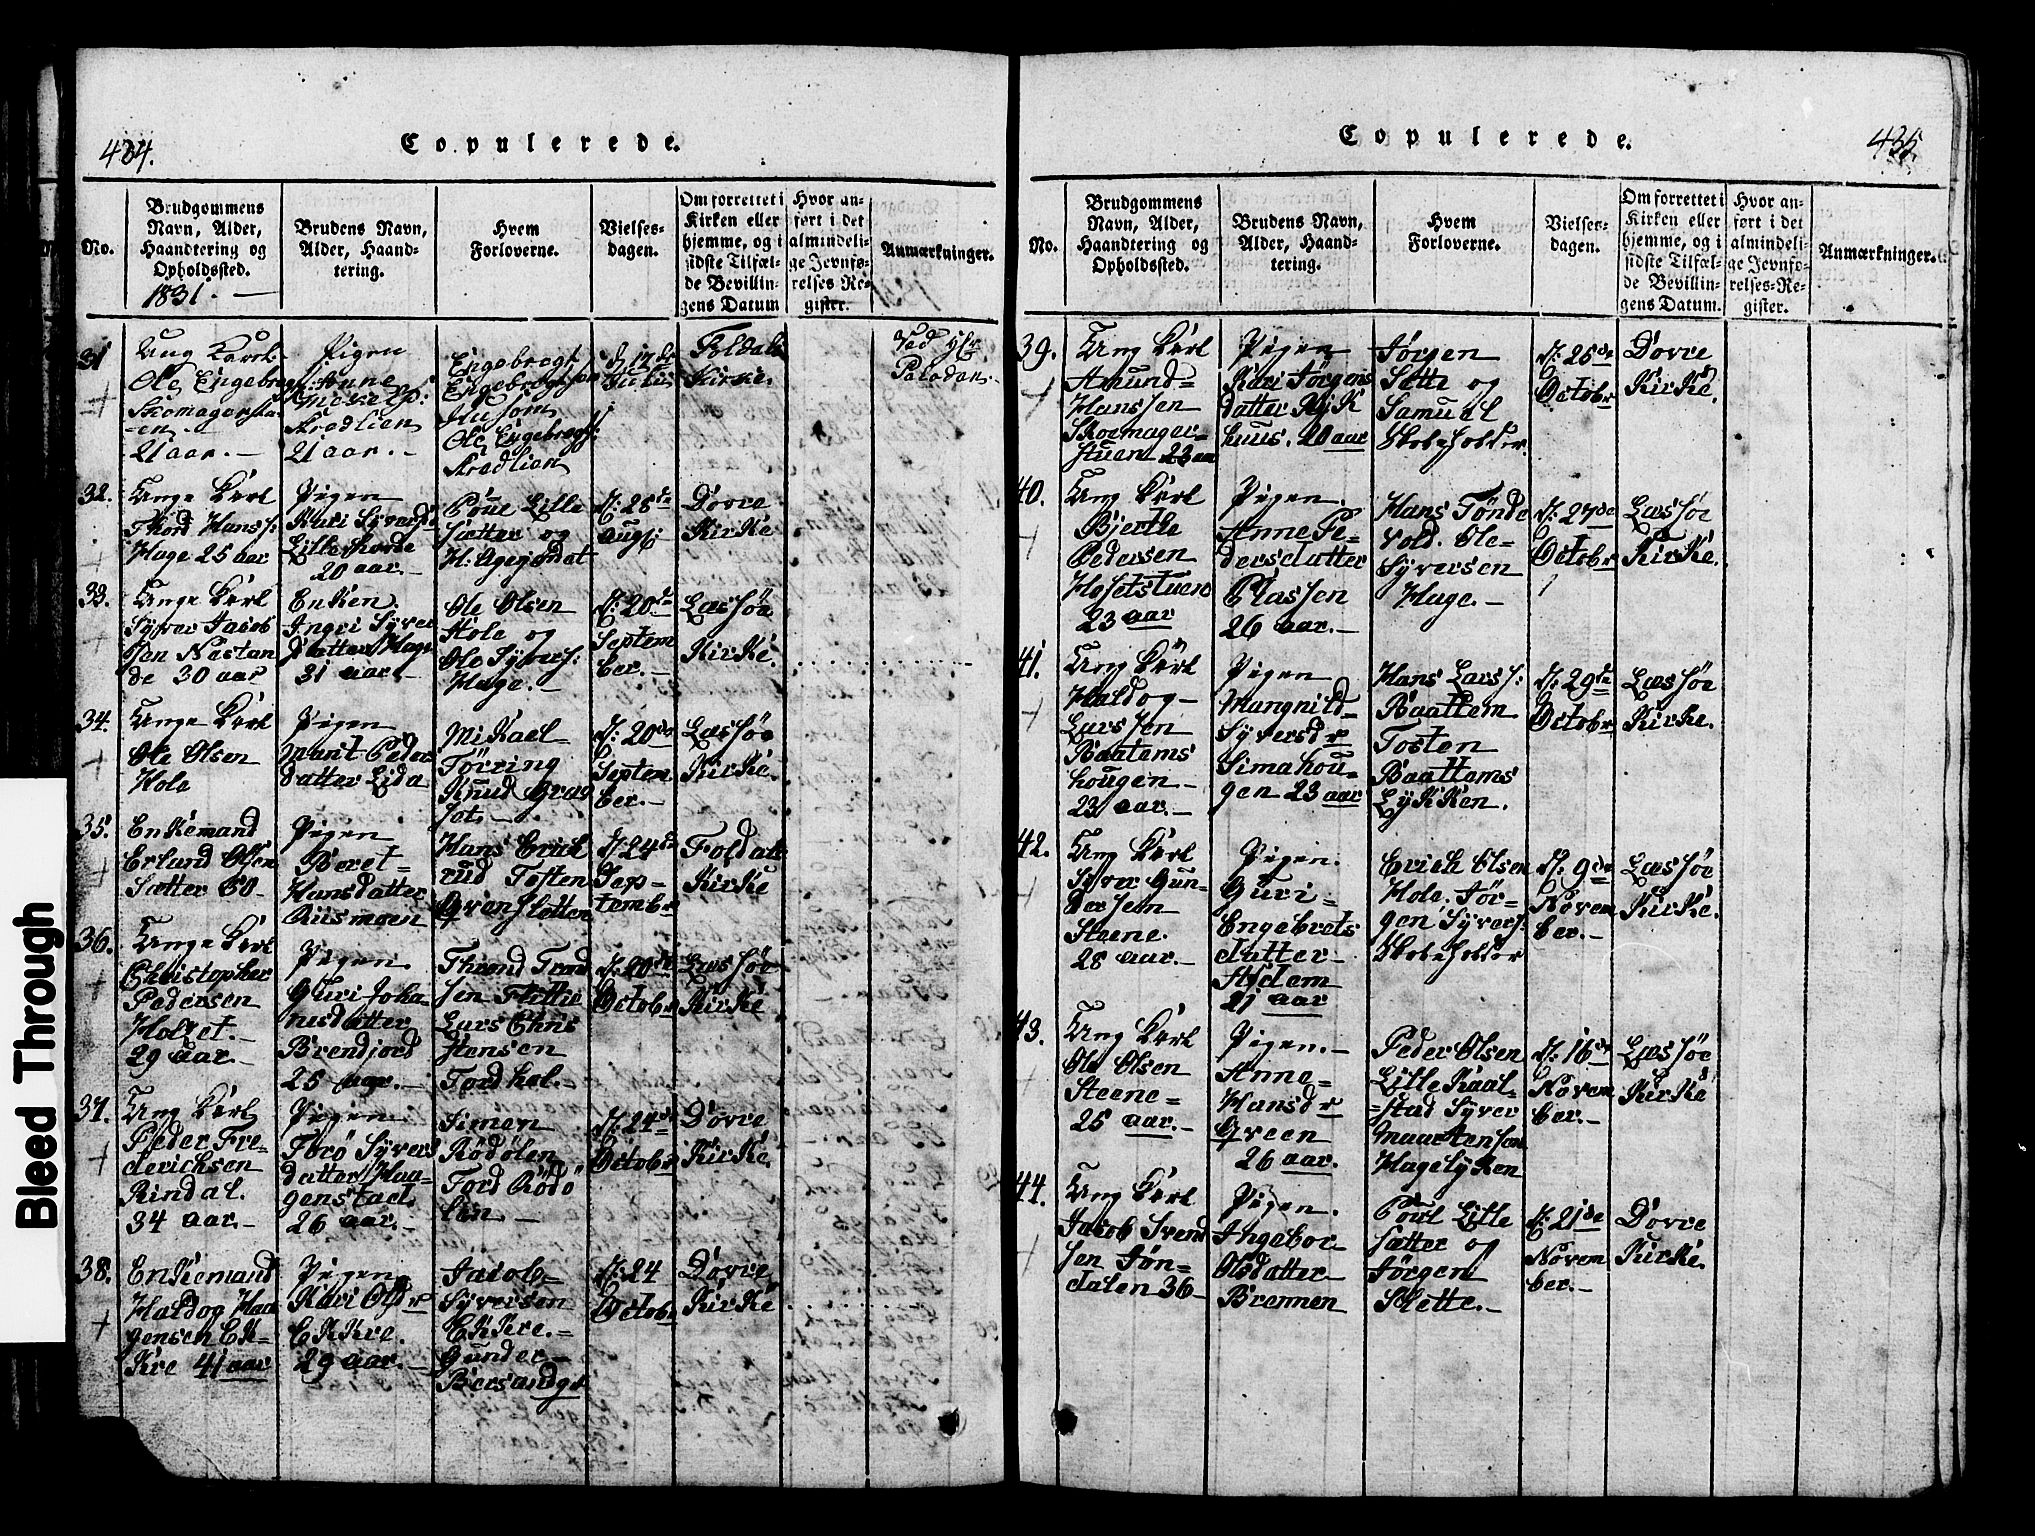 434.
Copulerede.
No.
Brudgommens
Navn, Alder,
Haandtering og
Opholdssted.
1831. —
Brudens Navn,
Alder, Haand-
tering.
Hvem
Forloverne.
Vielses-
dagen.
Om forrettet i
Kirken eller
hjemme, og i
sidste Tilfæl-
de Bevillin-
gens Datum
Hvor an-
ført i det
almindeli-
ge Jevnfø-
relses-Re-
gister.
Anmærkninger.
31
Ung Karl
Ole Engebregts:
Skomagerstu-
en.
21 aar. —
Pigen
Anne
Stredlien
21 aar. —
Engebregt
Engebregtsen
Husom
Ole Engebregts:
Stredlien
Foldals
Kirke.
32.
Unge Kerl
Thord Hans s:
Hage 25 aar
Pigen
Kari Syversd
20 aar. —
Poul Lille
Sætter og
D: 28de
Augt;
Dovre
Kirke
33.
Unge Kerl
Syver Jacob
sen Nestan
de 30 aar
Enken.
Ingri Syver
datter Hage
31 aar —
Ole Olsen
Hole og
Ole Syvers:
Hage. —
D: 20de
Septem
ber. —
Læssøe
Kirke.
34.
Unge Kerl
Ole Olsen
Hole
Pigen
Marit Peder
datter Lida
Mikael
Törring
Knud
D: 20de
Septem
ber. —
Læssøe
Kirke.
35.
Enkemand
Erland Olsen
Sætter 60 —
Pigen
Beret-
Hansdatter
Rusmoen
Hans Brude
rud Tosten
Gvenslotten
D: 24de
Sep-
tembr
Foldals
Kirke
36.
Unge Kerl
Christopher
Pedersen
Holset. —
29 aar. —
Pigen.
Guri Joha
nisdatter
Brendjord
25 aar. —
Thrond Trond
sen Flittie
Lars Chris
stensen
Tordhol. —
D: 20de
Octobr
Læssøe
Kirke
37.
Ung Kerl
Peder Fre-
derichsen
Rindal.
34 aar. —
Pigen
Torö Syvers
datter Haa-
genstad
26 aar. —
Simen
Rödölen
Tord Rödö
len. —
D: 24de
Octobr
Dovre
Kirke.
38.
Enkemand
Haldog Haa
gensen Ek-
kre 41 aar
Pigen
Kari Olsdr
Ekkre.
29 aar. —
Jacob
Syversen
Ekkre.
Gunder —
D: 24
Octobr
Dovre
Kirke
435.
Copulerede.
No.
Brudgommens
Navn, Alder,
Haandtering og
Opholdssted.
Brudens Navn,
Alder, Haand-
tering.
Hvem
Forloverne.
Vielses-
dagen.
Om forrettet i
Kirken eller
hjemme, og i
sidste Tilfæl-
de Bevillin-
gens Datum.
Hvor an-
ført i det
almindeli-
ge Jevnfø-
relses-Re-
gister.
Anmærkninger.
39.
Ung Kerl
Amund-
Hanssen
Skoemager-
stuen 23 aar
Pigen
Kari Jörgens
datter Kyk
huus. 20 aar
Jörgen
Sætte og
Samuel
Skoleholder.
D: 25de
Octobr
Dovre
Kirke.
40.
Ung Kerl
Biertke
Pedersen
Hosetstuen
23 aar
Pigen.
Anne Pe-
dersdatter
Plassen
26 aar. —
Hans Tönde
vold. Ole-
Syversen
Hage. —
D: 27de
Octobr
Læssøe
Kirke.
41.
Ung Kerl
Haldog —
Larssen
Baatems
hougen —
23 aar. —
Pigen
Mangnild-
Syversdr
Simahou-
gen 23 aar
Hans Lars s:
Baattem
Tosten
Baattems
Lykken.
D: 29de
Octobr
Læssøe
Kirke.
42.
Ung Kerl
Syver Gun-
dersen
Steene.
28 aar. —
Pigen.
Guri —
Engebrets
datter —
21 aar
Erich Olsen
Hole. Jör-
gen Syvers:
Skoleholder
D: 9de
Novem
ber. —
Læssøe
Kirke.
43.
Ung Kerl
Ole Olsen
Steene =
25 aar. —
Pigen. —
Anne =
Hansdr
Gveen
26 aar.
Peder Olsen
Lille Kaal
=stad Syver
Maartensen
Hagelyken
D: 16de
Novem
ber. —
Læssøe
Kirke
44.
Ung Kerl
Jacob Svend
sen Jön-
dalen 36 —
Pigen.
Ingebor
Olsdatter —
Brennen
Poul Lille
sætter og
Jörgen
Slette. —
D: 21de
Novem
ber. —
Dovre
Kirke.
Bleed Through